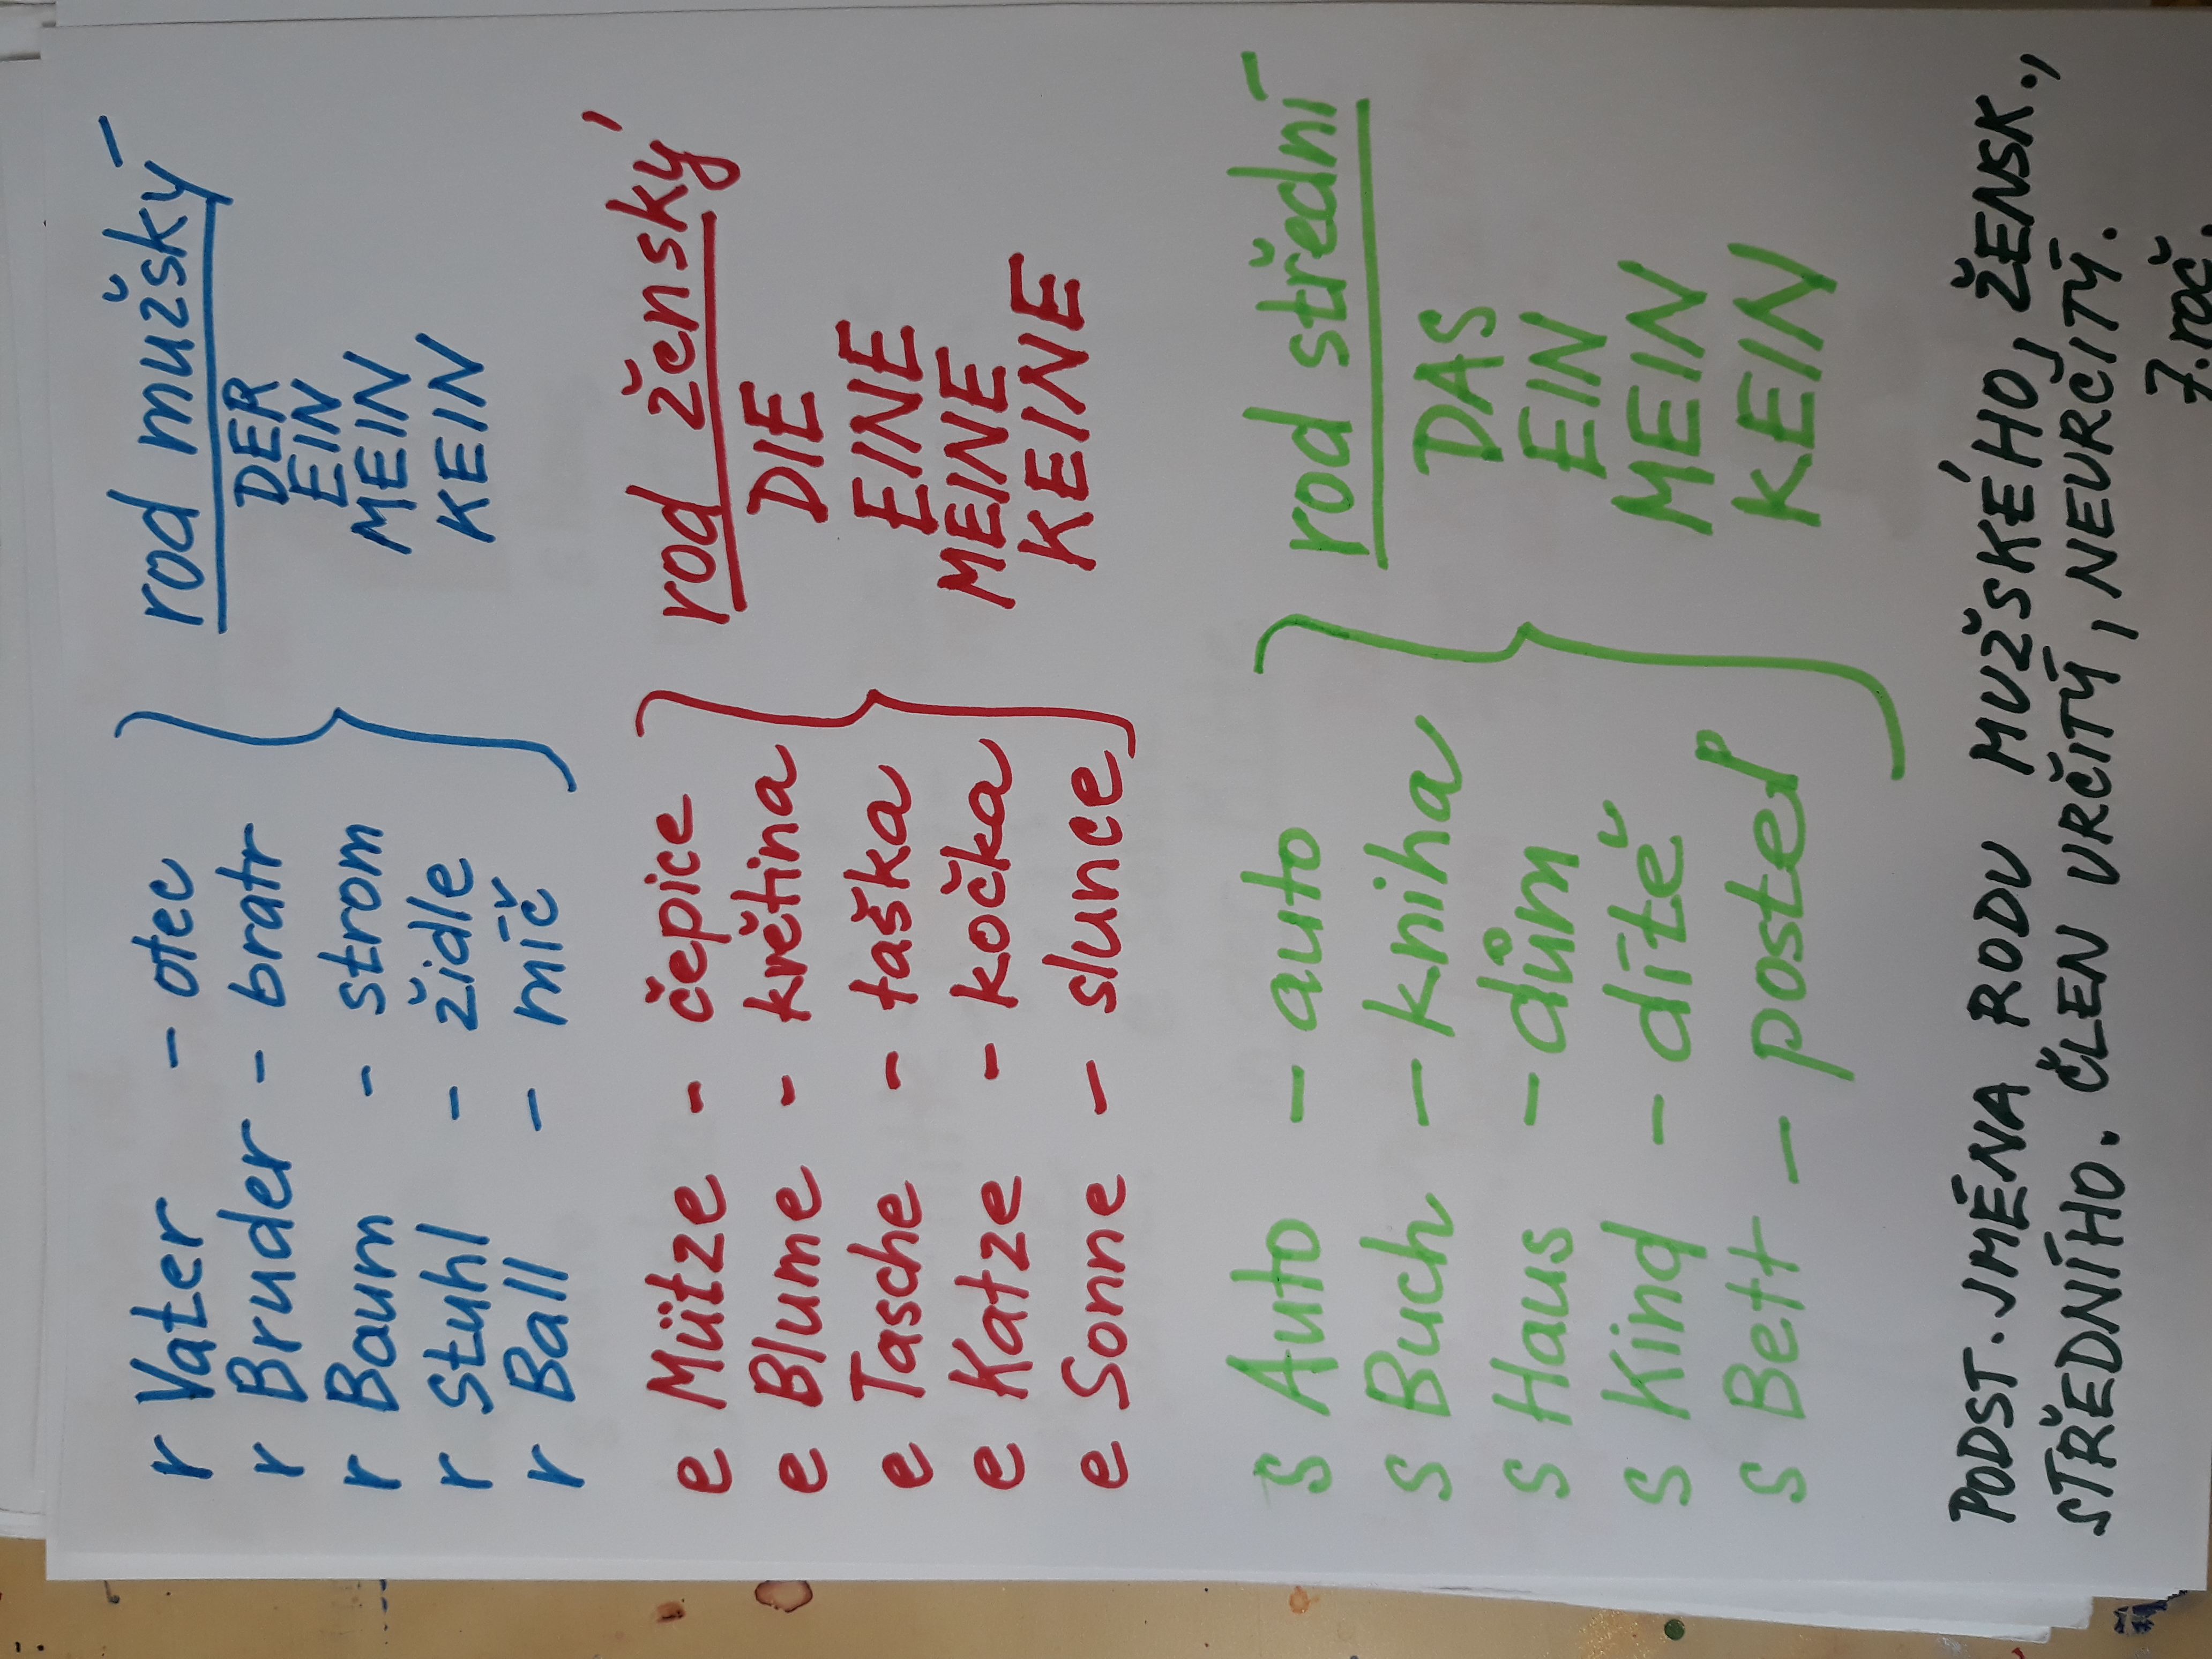 r Vater - otec
r Bruder - bratr
r Baum - strom
r Stuhl - židle
r Ball - míč
rod mužský
DER
EIN
MEIN
KEIN
e Mütze - čepice
e Blume - květina
e Tasche - taška
e Katze - kočka
e Sonne - slunce
rod ženský
DIE
EINE
MEINE
KEINE
s Auto - auto
s Buch - kniha
s Haus - dům
s Kind - dítě
s Bett - postel
rod střední
DAS
EIN
MEIN
KEIN
PODST. JMÉNA RODU MUŽSKÉHO, ŽENSK.,
STŘEDNÍHO. ČLEN URČITÝ, NEURČITÝ.
7. roč.